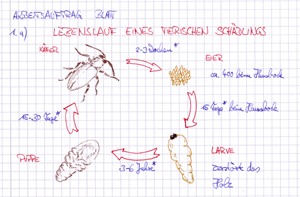 ARBEITSAUFTRAG BLATT
1. a) LEBENSLAUF EINES TIERISCHEN SCHÄDLINGS
KÄFER
2-3 Wochen*
EIER
ca. 400 beim Hausbock
15-30 Tage*
15 Tage* beim Hausbock
PUPPE
3-6 Jahre*
LARVE
zerstört das
Holz